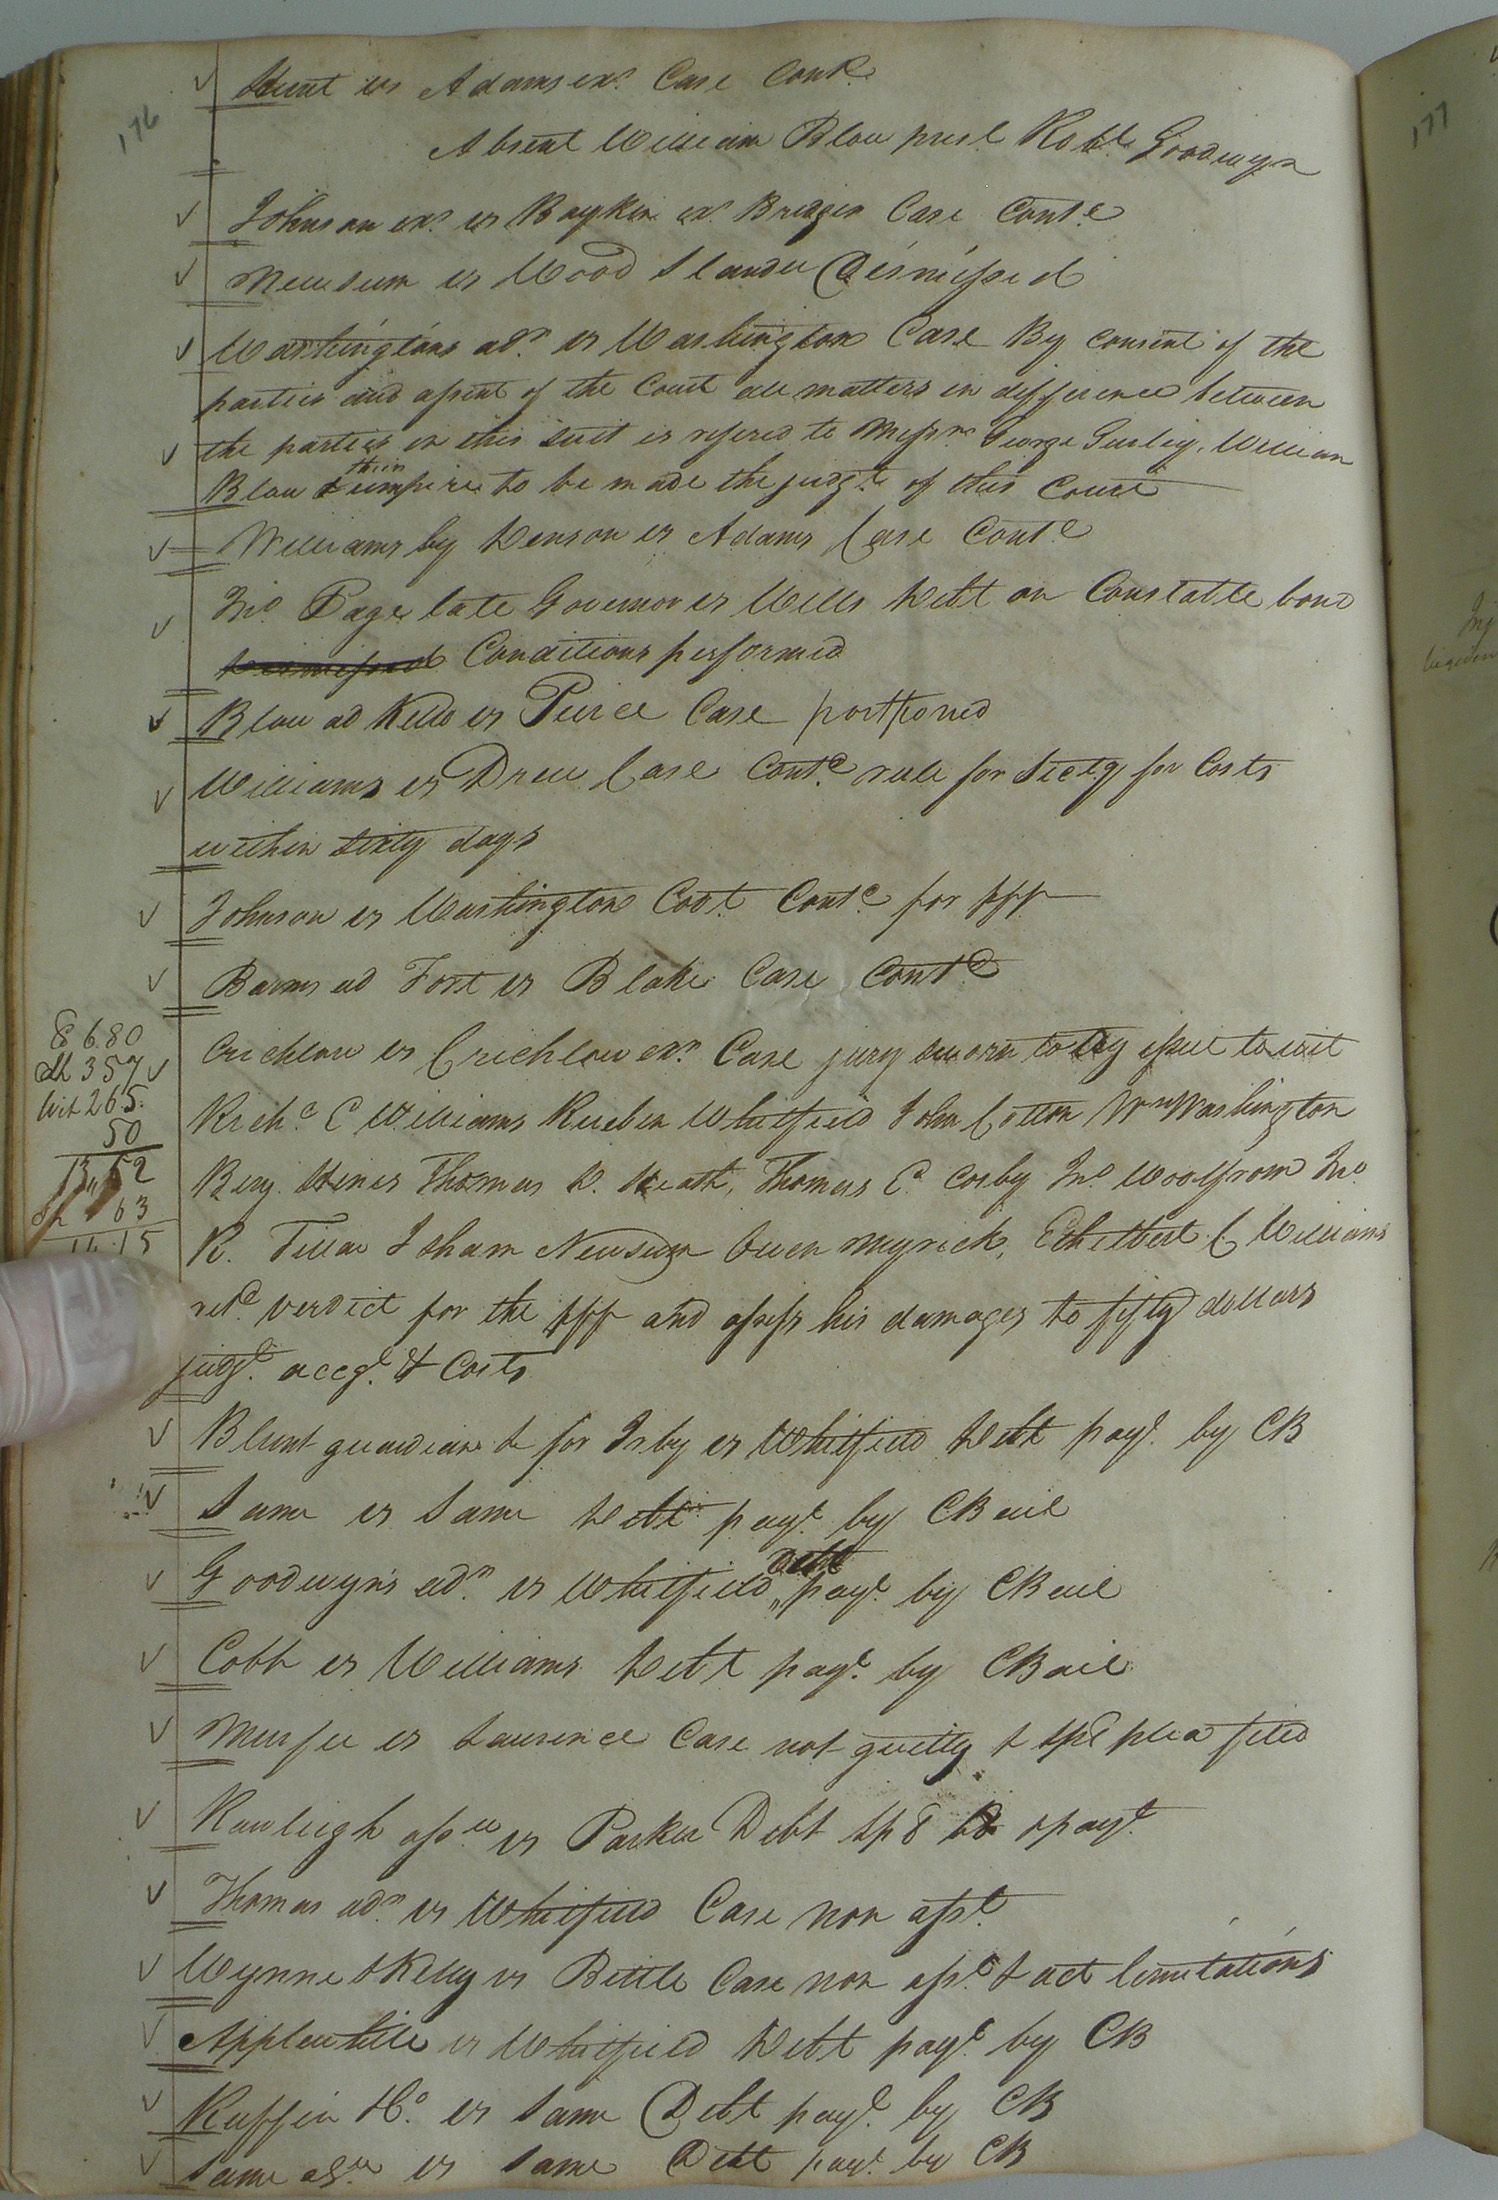 176
177
Hunt vs Adams exr. Case Contd.
Absent William Blow presd. Robt. Goodwyn
Johnson exr. vs Boykin exr. Bridger Case Contd.
Newsum vs Wood Slander Dismissed
Washingtons adr. vs Washington Case By consent of the
parties and assent of the Court all matters in difference between
the parties in this suit is refered to Messrs. George Gurley, William
Blow & their umpire to be made the judgt. of this Court
Williams by Denson vs Adams Case Contd.
Jno. Page late Governor vs Wills Debt on Constable bond
Dismissed Conditions performed
Blow ad Kello vs Peirce Case postponed
Williams vs Drew Case Contd. rule for Secty for Costs
within sixty days
Johnson vs Washington Covt. Contd. for plff
Barns ad Fort vs Blake Case Contd.
Crichlow vs Crichlow exr. Case jury sworn to try issue to wit
8 6.80
357
Wit 265.
50
13,52
63
14.15
Richd. C Williams Rueben Whitfield John Cotton Wm Washington
Benj. Hines Thomas D. Heath, Thomas E. Corby Jno. Woolfrom Jno.
R. Tillar Isham Newsum Owen Myrick, Ethelbert C Williams
retd. verdict for the plff and assess his damages to fifty dollars
judgt. accgd. & Costs
Blunt guardian & for Irby vs Whitfield Debt payt. by CB
Same vs Same Debt payt. by CBail
Goodwyn's adr. vs Whitfield Debt payt. by CBail
Cobb vs Williams Debt payt. by CBail
Murfee vs Laurence Case not guilty & spl plea filed
Rawleigh assee vs Parker Debt payt.
Thomas adr. vs Whitfield Case non asst.
Wynne & Kelly vs Bittle Case non asst. & act limitations
Applewhite vs Whitfield Debt payt. by CB
Ruffin & Co. vs Same Debt payt. by CB
Same asee. vs Same Debt payt. by CB